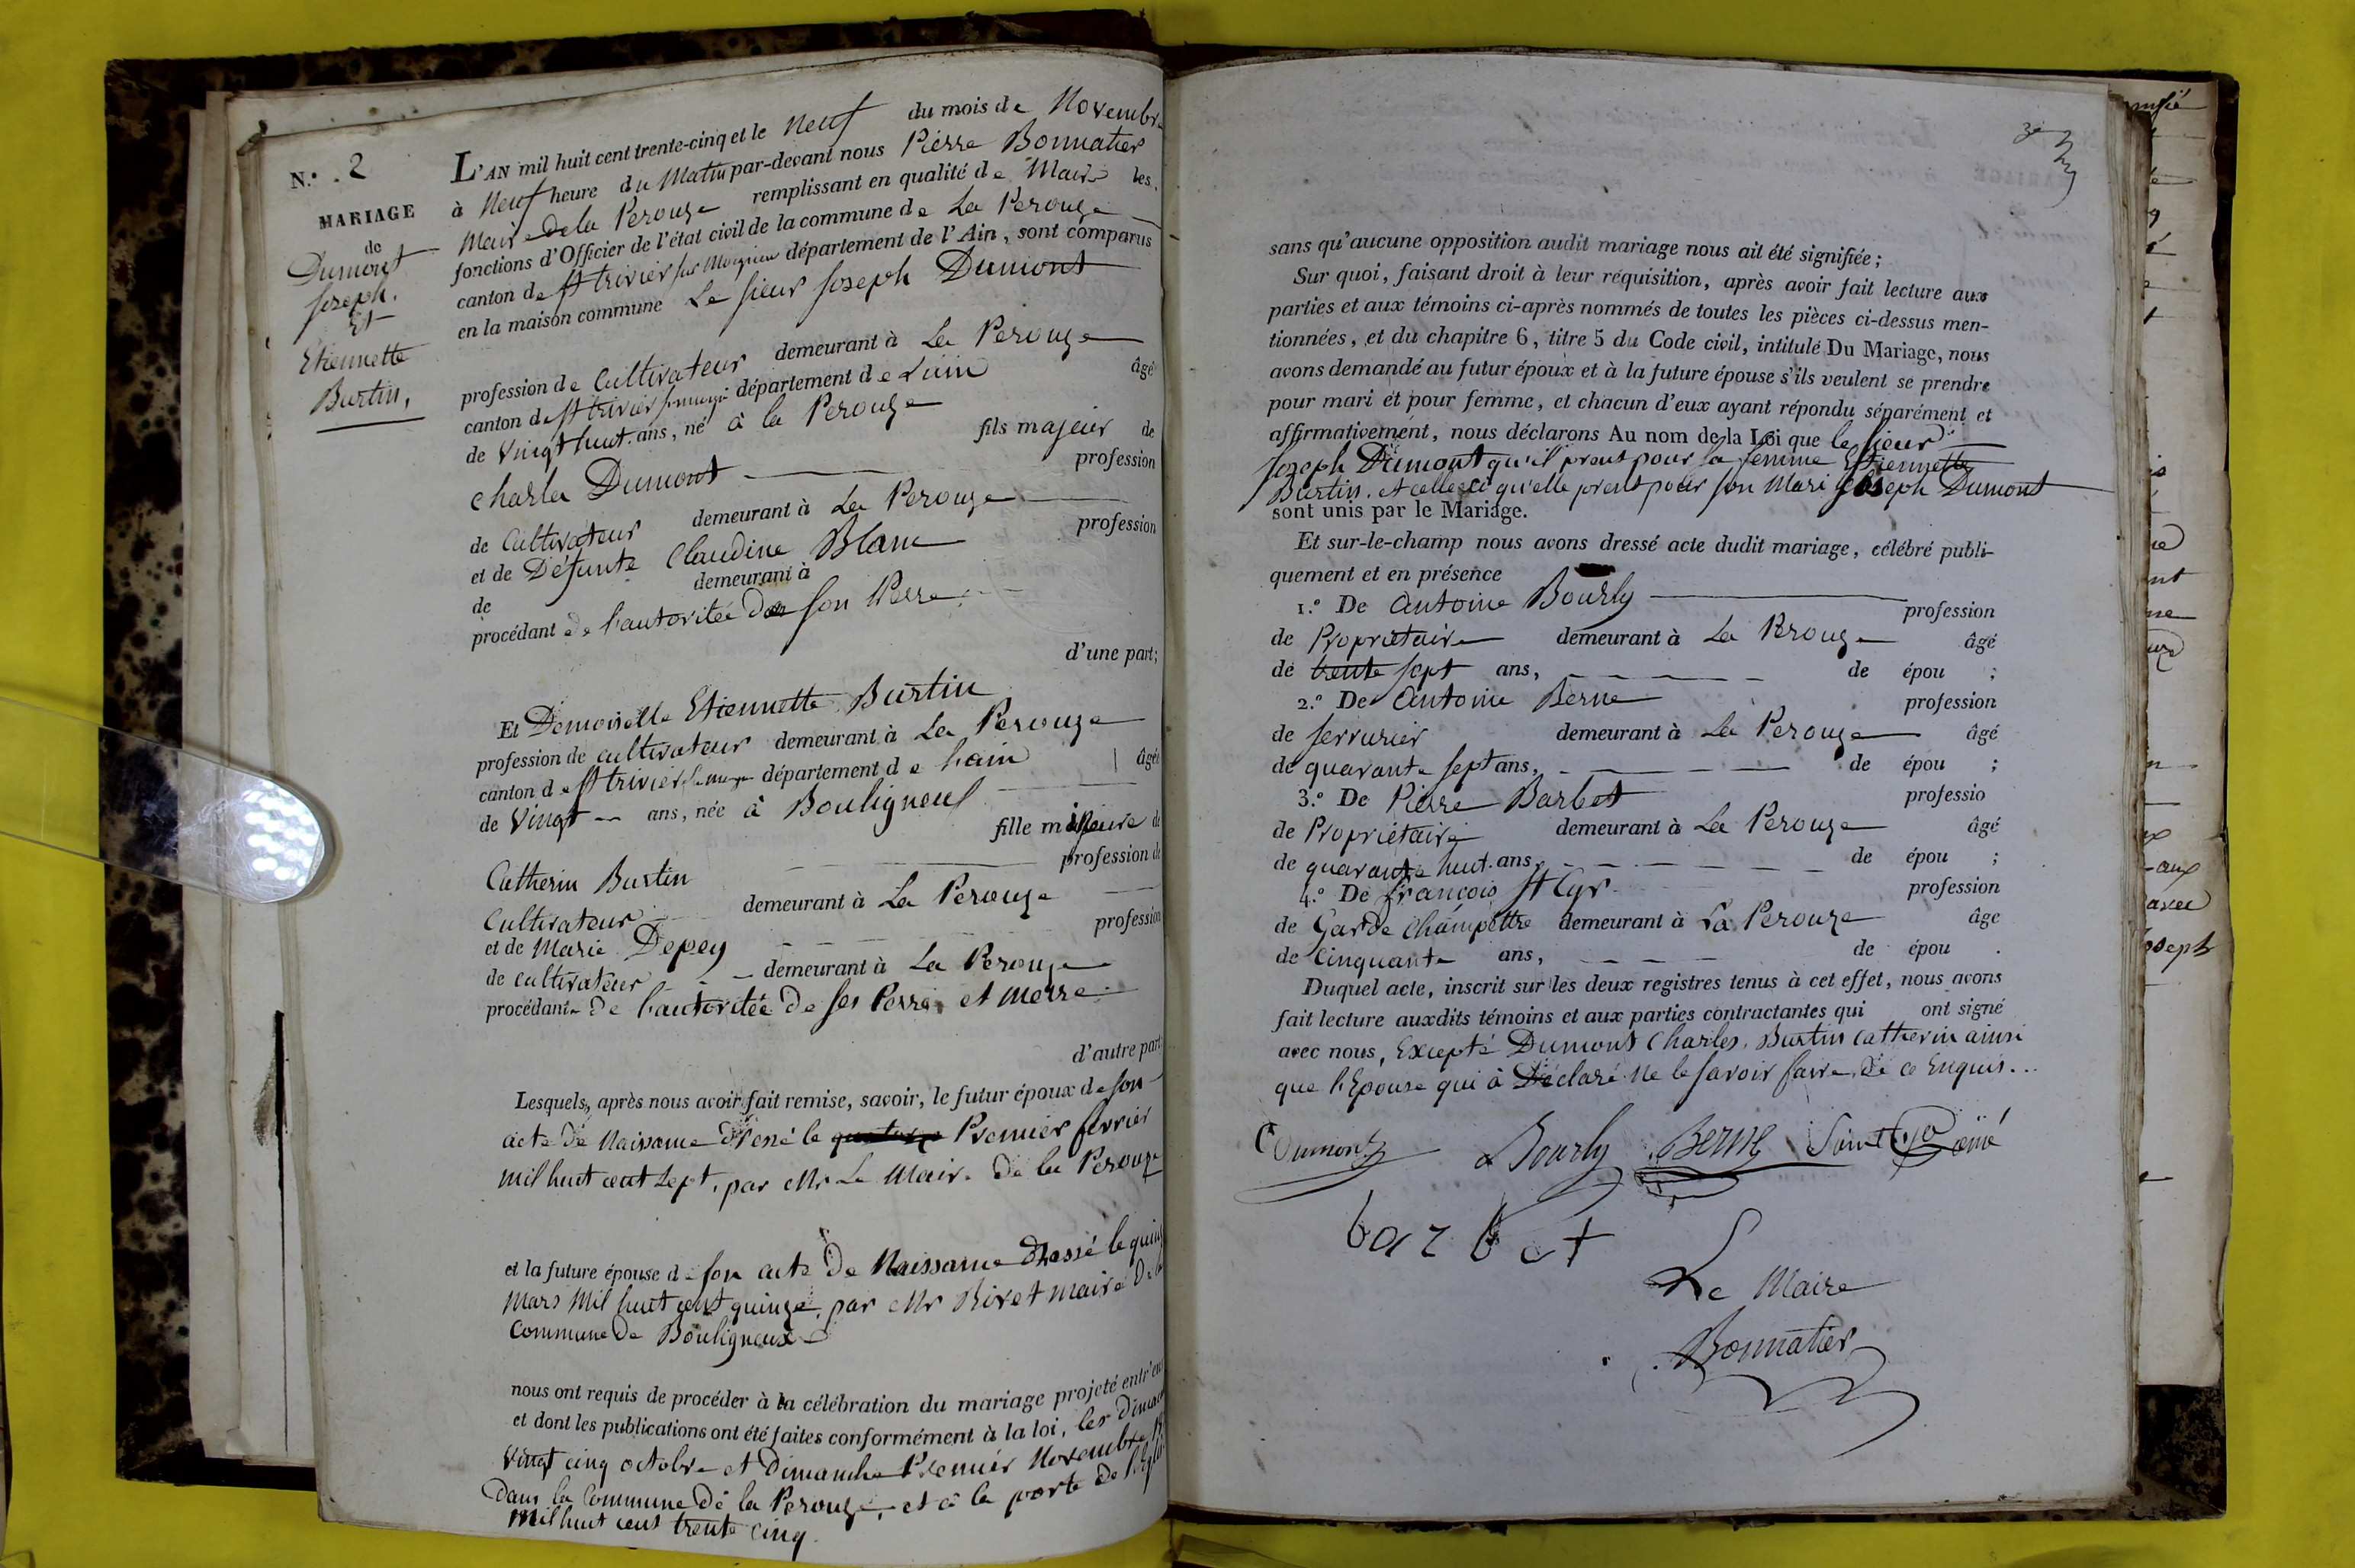 N.° 2
MARIAGE
de
Dumont
Joseph.
Et
Etiennette
Burtin,
L'AN mil huit cent trente-cinq et le Neuf du mois de Novembre
à Neuf heure du Matin par-devant nous Pierre Bonnatier
Maire de la Perouze remplissant en qualité de Maire les
fonctions d'Officier de l'état civil de la commune de La Perouze
canton de St trivier sur Moignin département de l'Ain, sont comparus
en la maison commune Le sieur Joseph Dumont
profession de Cultivateur demeurant à La Perouze
canton de St trivier département de L'ain âgé
de Vingt huit ans, né à la Perouze
fils majeur de
Charles Dumont profession
de Cultivateur demeurant à La Perouze
et de Défunte Claudine Blanc profession
de demeurant à
procédant de l'autoritée de son Perre
d'une part;
Et Demoiselle Etiennette Burtin
profession de cultivateur demeurant à La Perouze
canton de St trivier département de Lain âgée
de Vingt ans, née à Bouligneux
fille mineure de
Catherin Burtin profession de
Cultivateur demeurant à La Perouze
et de Marie Depey profession
de cultivateur demeurant à La Perouze
procédante de l'autoritée de ses Perre et Merre
d'autre part
Lesquels, après nous avoir fait remise, savoir, le futur époux de son
acte de Naissance dressé le Premier fevrier
mil huit cent sept, par Mr Le Maire De la Perouze
et la future épouse de son acte de Naissance dressé le quinze
Mars Mil huit cent quinze, par Mr Rivet maire De la
Commune De Bouligneux
nous ont requis de procéder à la célébration du mariage projeté entr'eux
et dont les publications ont été faites conformément à la loi, les Dimanche
Vingt cinq octobre et Dimanche Premier Novembre
Dans la Commune De la Perouze, et à la porte de l'Eglise
Mil huit cent trente cinq.
sans qu'aucune opposition audit mariage nous ait été signifiée;
Sur quoi, faisant droit à leur réquisition, après avoir fait lecture aux
parties et aux témoins ci-après nommés de toutes les pièces ci-dessus men-
tionnées, et du chapitre 6, titre 5 du Code civil, intitulé Du Mariage, nous
avons demandé au futur époux et à la future épouse s'ils veulent se prendre
pour mari et pour femme, et chacun d'eux ayant répondu séparément et
affirmativement, nous déclarons Au nom de la Loi que le sieur
Joseph Dumont qu'il prent pour sa femme Etiennette
Burtin. et celle ci qu'elle prent pour son Mari Joseph Dumont
sont unis par le Mariage.
Et sur-le-champ nous avons dressé acte dudit mariage, célébré publi-
quement et en présence
1.° De Antoine Bourly profession
de Propriétaire demeurant à La Perouze âgé
de trente sept ans, de épou ;
2.° De Antoine Berne profession
de serrurier demeurant à La Perouze âgé
de quarante sept ans, de épou ;
3.° De Pierre Barbet professio
de Propriétaire demeurant à La Perouze âgé
de quarante huit ans, de épou ;
4.° De François St Cyr profession
de Garde Champêttre demeurant à La Perouze âge
de Cinquante ans, de épou .
Duquel acte, inscrit sur les deux registres tenus à cet effet, nous avons
fait lecture auxdits témoins et aux parties contractantes qui ont signé
avec nous, Excepté Dumont Charles, Burtin Catherin ainsi
que l'Epouse qui à Déclaré Ne le savoir faire De ce Enquis...
Dumont Bourly Berne Saint Cyr ainé
barbet
Le Maire
Bonnatier